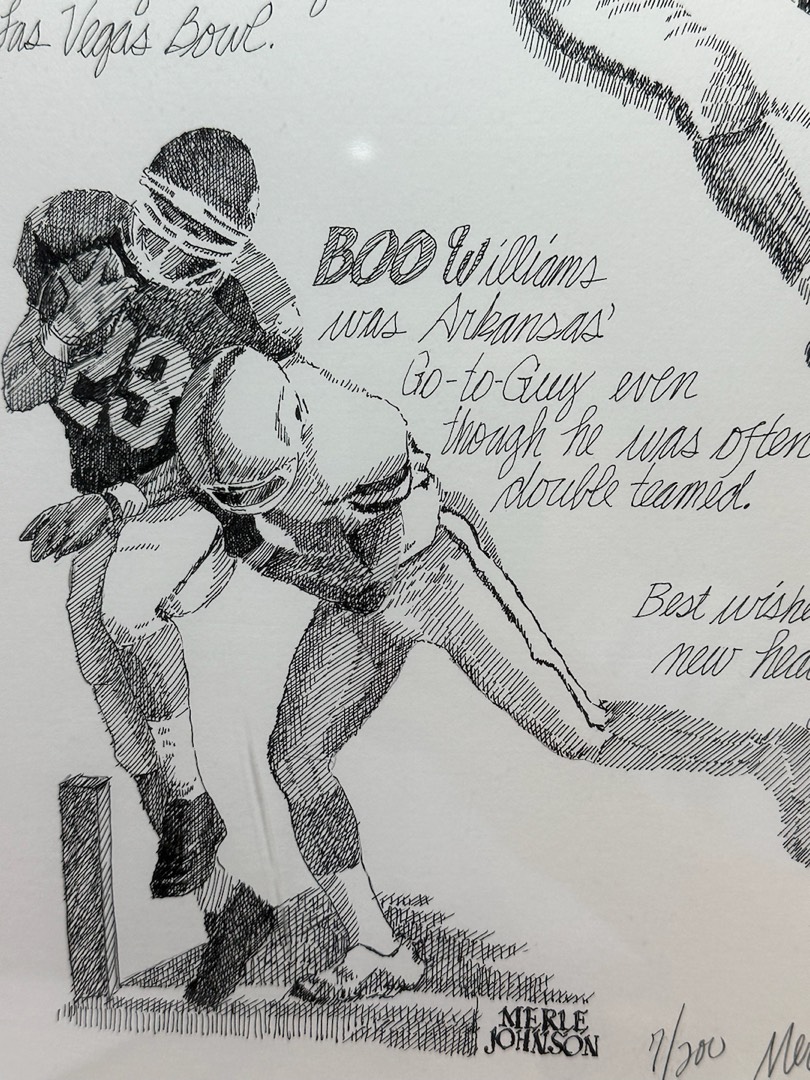 Las Vegas Bowl.
BOO Williams
was Arkansas'
Go-to-Guy even
though he was often
double teamed.
Best wishe
new hea
MERLE
JOHNSON
7/200 Mer